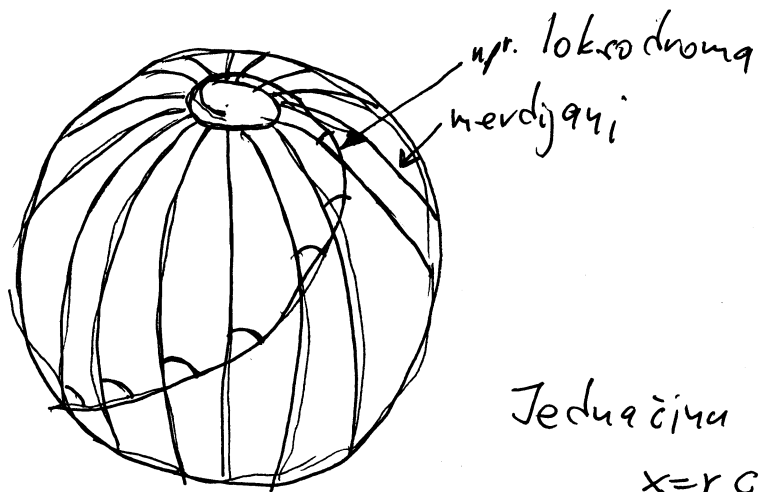 npr. loksodroma
merdijani
Jednačinu
x=r c